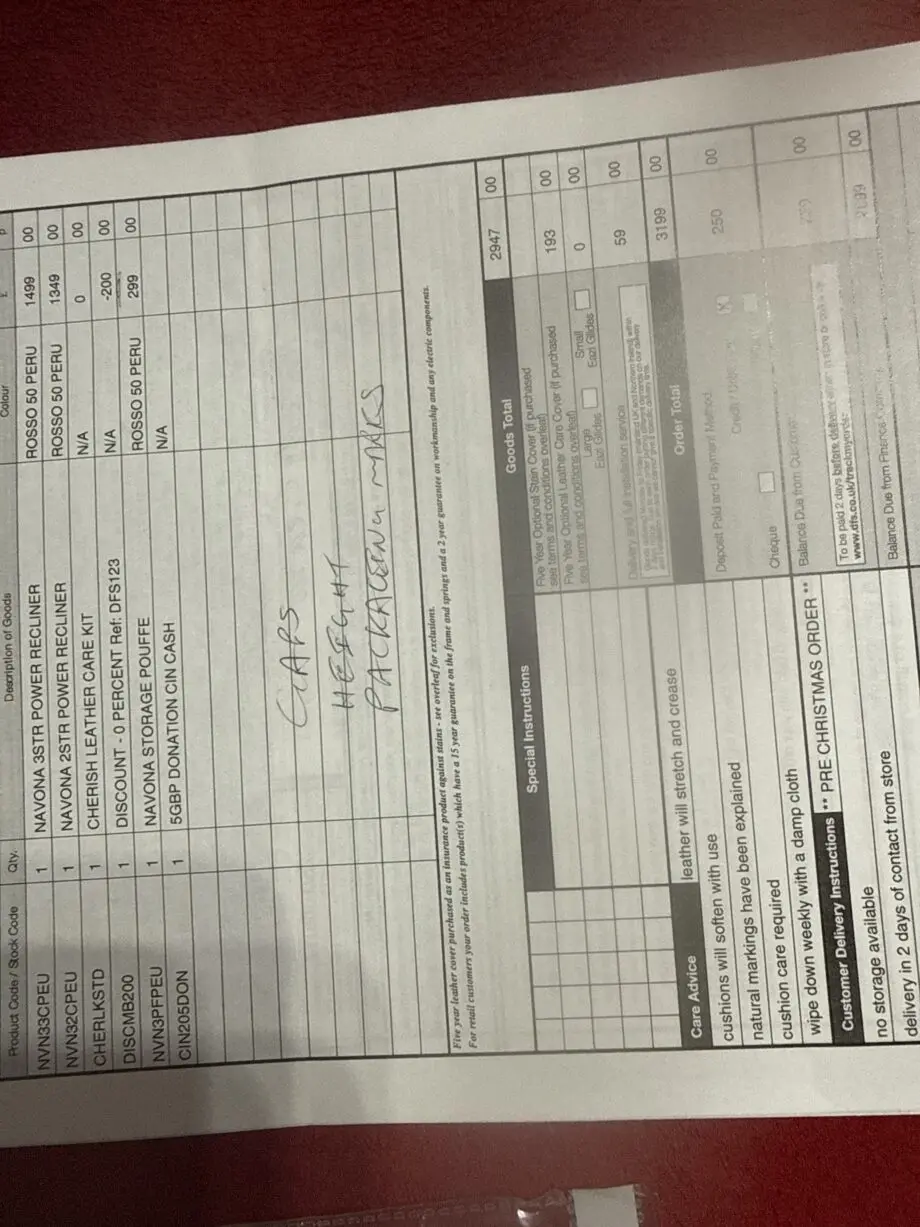 Product Code / Stock Code Qty. Description of Goods Colour £ p
NVN33CPEU 1 NAVONA 3STR POWER RECLINER ROSSO 50 PERU 1499 00
NVN32CPEU 1 NAVONA 2STR POWER RECLINER ROSSO 50 PERU 1349 00
CHERLKSTD 1 CHERISH LEATHER CARE KIT N/A 0 00
DISCMB200 1 DISCOUNT - 0 PERCENT Ref: DFS123 N/A -200 00
NVN3PFPEU 1 NAVONA STORAGE POUFFE ROSSO 50 PERU 299 00
CIN205DON 1 5GBP DONATION CIN CASH N/A
HEIGHT
Five year leather cover purchased as an insurance product against stains - see overleaf for exclusions.
For retail customers your order includes product(s) which have a 15 year guarantee on the frame and springs and a 2 year guarantee on workmanship and any electric components.
Goods Total 2947 00
Special Instructions
Five Year Optional Stain Cover (if purchased
see terms and conditions overleaf) 193 00
Five Year Optional Leather Care Cover (if purchased
see terms and conditions overleaf) 0 00
Large Eazi Glides Small Eazi Glides
Delivery and full installation service 59 00
Order Total 3199 00
Care Advice leather will stretch and crease
cushions will soften with use
natural markings have been explained
cushion care required
wipe down weekly with a damp cloth
Deposit Paid and Payment Method 250 00
Cheque
Balance Due from Customer 00
Customer Delivery Instructions ** PRE CHRISTMAS ORDER **
To be paid 2 days before delivery
www.dfs.co.uk/trackmyorder 00
no storage available
Balance Due from Finance
delivery in 2 days of contact from store